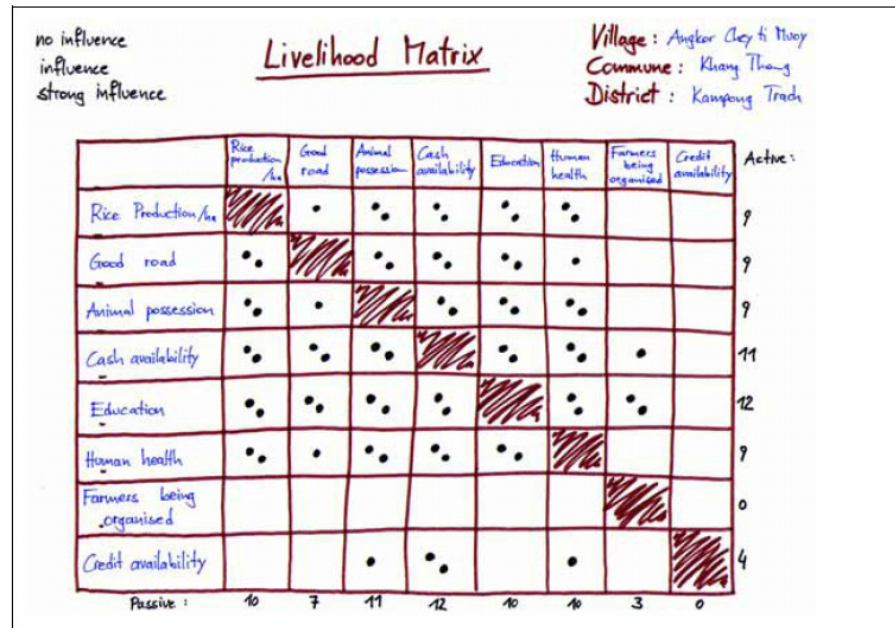 no influence
influence
strong influence
Livelihood Matrix
Village : Angkor Chey ti Muoy
Commune : Khang Thong
District : Kampong Trach
Rice production /ha
Good road
Animal possession
Cash availability
Education
Human health
Farmers being organised
Credit availability
Active :
Rice Production/ha 9
Good road 9
Animal possession 9
Cash availability 11
Education 12
Human health 9
Farmers being organised 0
Credit availability 4
Passive : 10 7 11 12 10 10 3 0